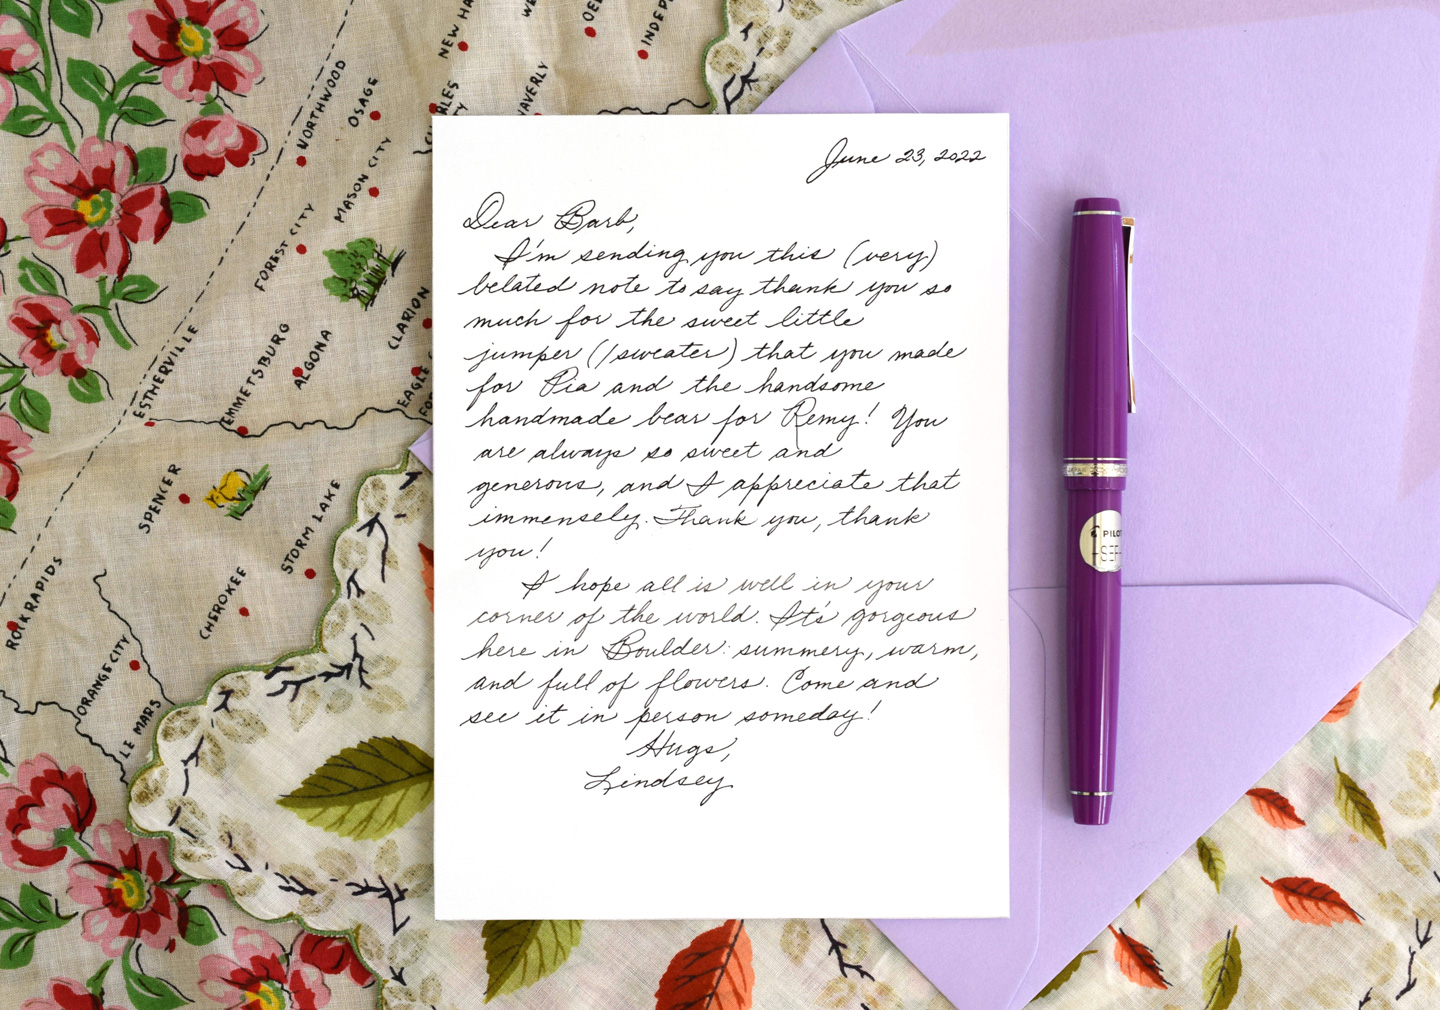 June 23, 2022
Dear Barb,
I'm sending you this (very)
belated note to say thank you so
much for the sweet little
jumper (/sweater) that you made
for Pia and the handsome
handmade bear for Remy! You
are always so sweet and
generous, and I appreciate that
immensely. Thank you, thank
you!
I hope all is well in your
corner of the world. It's gorgeous
here in Boulder: summery, warm,
and full of flowers. Come and
see it in person someday!
Hugs,
Lindsey
NORTHWOOD
OSAGE
NEW HA
INDEP
MASON CITY
FOREST CITY
CLARION
EAGLE
ALGONA
EMMETSBURG
ESTHERVILLE
SPENCER
STORM LAKE
CHEROKEE
ROCK RAPIDS
ORANGE CITY
LE MARS
WAVERLY
PILOT